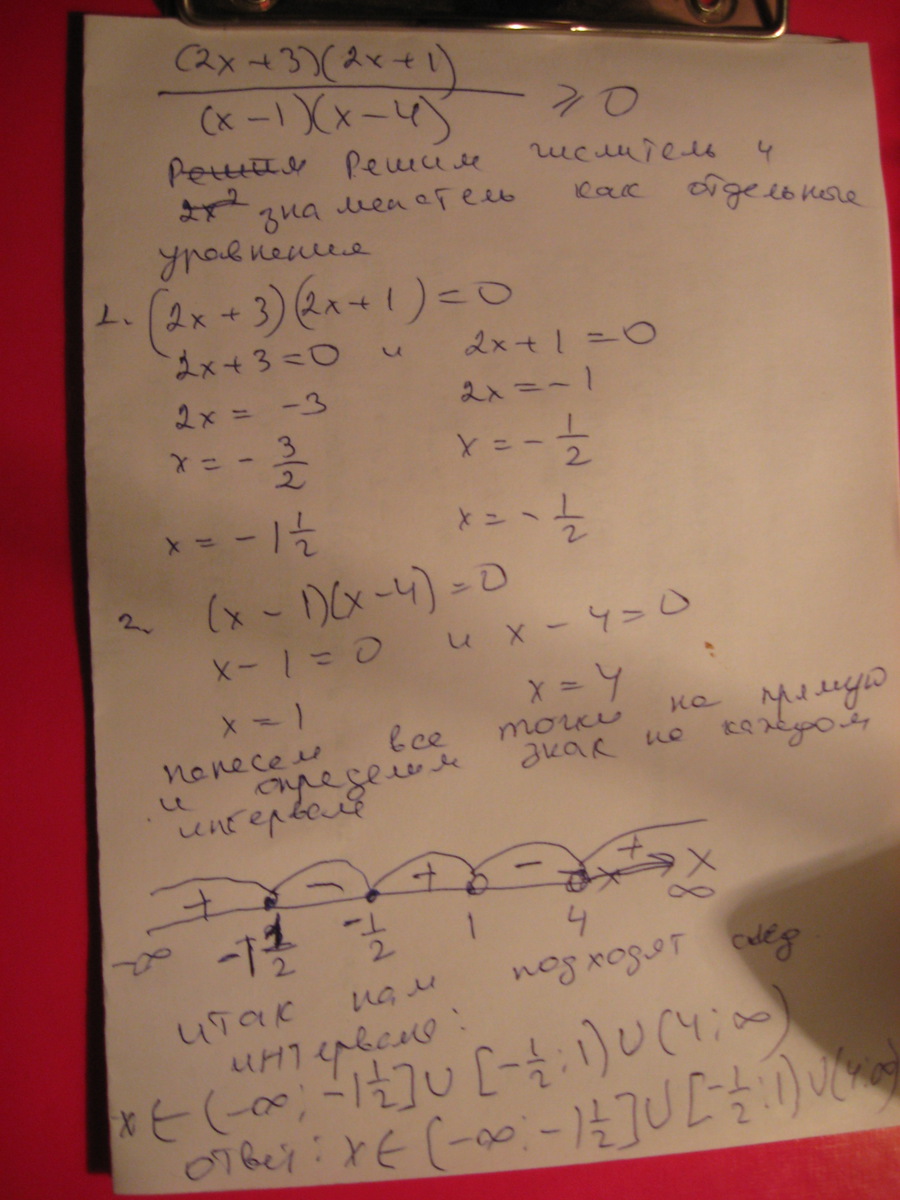 (2x+3)(2x+1)
(x-1)(x-4) ⩾ 0
Решим Решим числитель и
2x² знаменатель как отдельные
уравнения
1. (2x+3)(2x+1)=0
2x+3=0 и 2x+1=0
2x = -3 2x=-1
x = - 3/2 x = - 1/2
x = -1 1/2 x = - 1/2
2. (x-1)(x-4)=0
x-1=0 и x-4=0
x=1 x=4
нанесем все точки на прямую
и определим знак на каждом
интервале
+ - + - + x
-∞ -1 1/2 -1/2 1 4 ∞
итак нам подходят след.
интервалы:
x∈(-∞;-1 1/2]∪[-1/2;1)∪(4;∞)
ответ: x∈(-∞;-1 1/2]∪[-1/2;1)∪(4;∞)